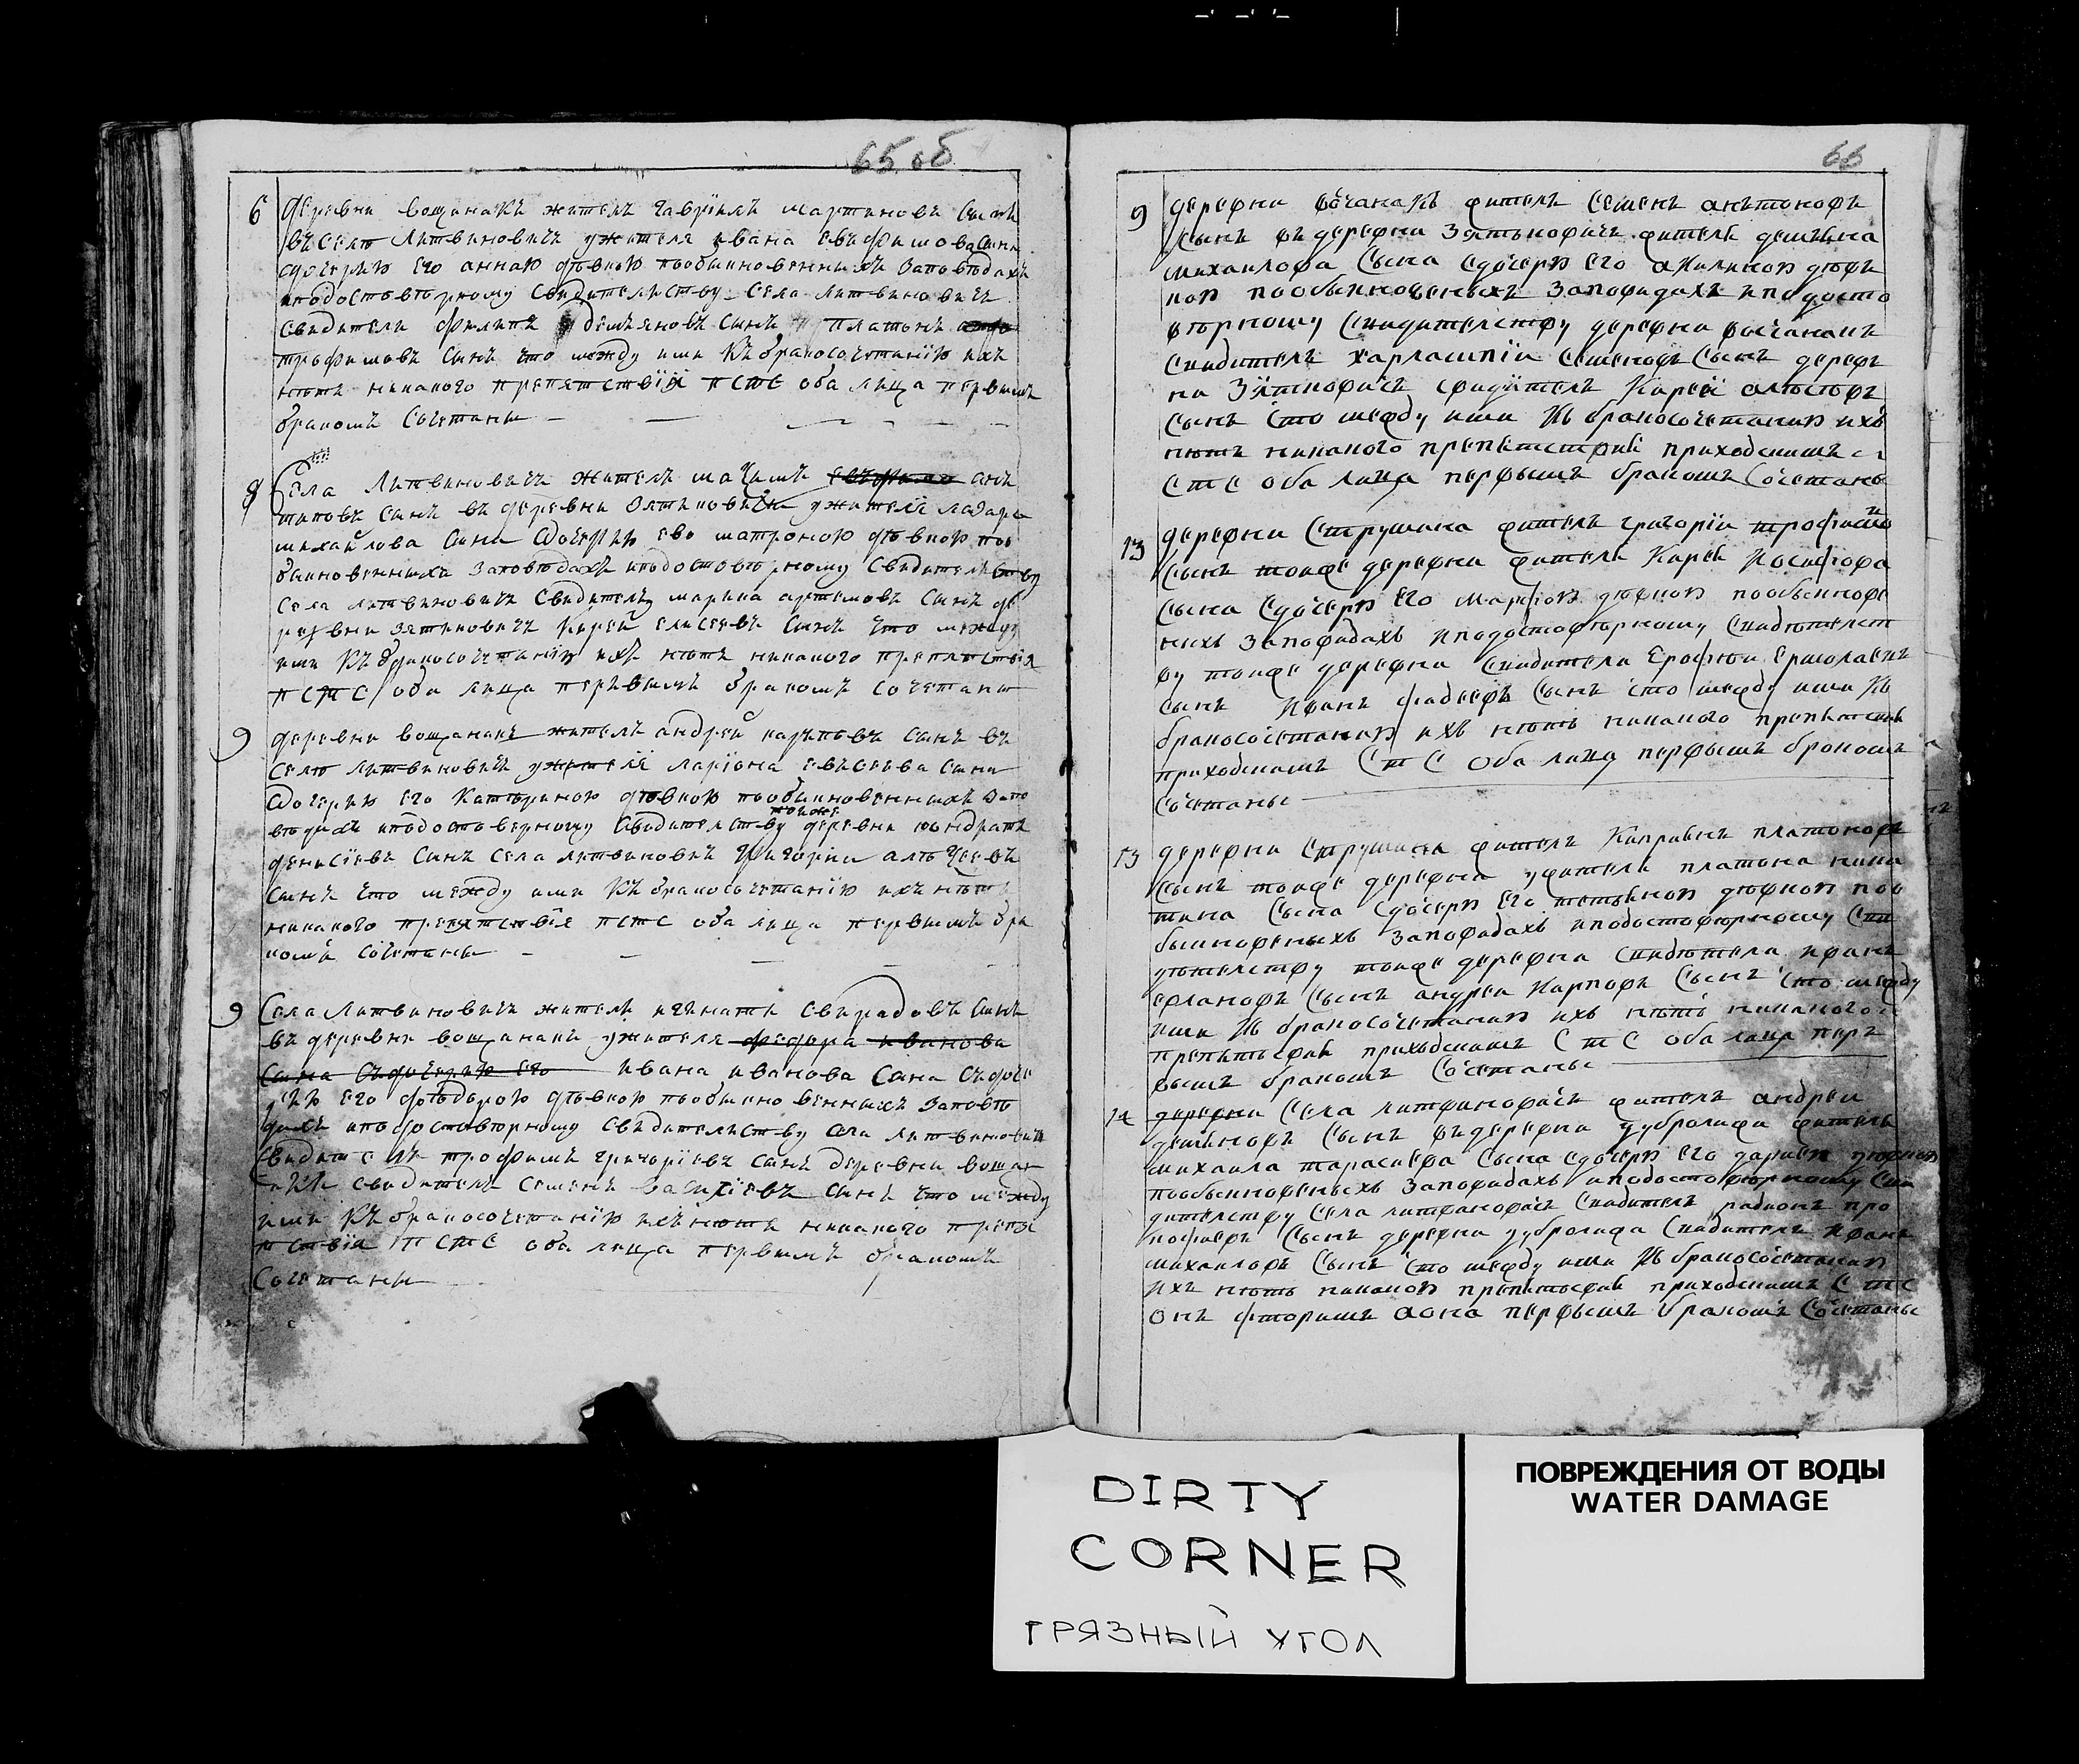 65 об
6 деревни вощанакъ житель гаврiилъ мартиновъ синъ
въ селѣ литвиновичъ ужителя ивана евъфимова сина
здочерию его анною дѣвкою пообикновеннихъ заповѣдахъ
иподостовѣрному свидителиству села литвиновичъ
свидители филипъ демъяновъ синъ платонъ
трофимовъ синъ что между ими къ бракосочетанiю ихъ
нѣтъ никакого препятствiя пстс оба лица первимъ
бракомъ сочетани
8 Села литвиновичъ житель мачимъ анъ
типовъ синъ въ деревни зятиновичи ужителя лазаря
михайлова сина здочерию ево матроною дѣвкою поо
бикновеннихъ заповѣдахъ иподостовѣрному свидителству
села литвиновичъ свидителъ марина артемовъ синъ де
ревни зятиновичъ кирей елисеевъ синъ что между
ими къ бракосочетанiю ихъ нѣтъ никакого препятствiя
пстс оба лица перъвимъ бракомъ сочетани
9 деревни вощанакъ житель андрей карповъ синъ въ
селѣ литвиновичъ ужителя ларiона евъсеева сина
здочерию его катѣриною дѣвкою пообикновеннихъ запо
вѣдахъ иподостоверному свидителству деревни кондратъ
тойже
денисiевъ синъ села литвиновичъ григорiи алѣѯеевъ
синъ что между ими къ бракосочетанiю ихъ нѣтъ
никакого препятствiя пстс оба лица первимъ бра
комъ сочетани
9 Села литвиновичъ житель игънатъ свиридовъ синъ
въ деревни вощанаки ужителя федора иванова
сина съдочерию его ивана иванова сина съдоче
рию его фѣодорою дѣвкою пообикновеннихъ заповѣ
дахъ иподостовѣрному свидителиству села литвиновичъ
свидителъ трофимъ григорiевъ синъ деревни воща
накъ свидителъ семенъ василiевъ синъ что между
ими къ бракосочетанiю ихъ нѣтъ никакого препя
тствiя пстс оба лица первимъ бракомъ
сочетани
66
9 деревни вочанакъ житель семенъ анътоновъ
сынъ въ деревни зятьковичъ жители демъяна
михаилова сына здочерю его акилиною дѣв
кою пообыкновеныхъ заповидахъ иподосто
вѣрному свидителству деревни вочанакъ
свидитель харлампiи семеновъ сынъ дерев
ни зятковичъ свидителъ кирей
сынъ что между ими къ бракосочетанию ихъ
нѣтъ никакого препятствий приходскимъ
стс оба лица первымъ бракомъ сочетаны
13 деревни струшина житель григорiи
сынъ тоиже деревни жители кирея иосифова
сына здочерю его марфою дѣвкою пообыкнове
ныхъ заповидахъ иподостовѣрному свидѣтелст
ву тоиже деревни свидители ерофѣи ермолаевъ
сынъ иванъ фадеевъ сынъ что между ими къ
бракосочетанию ихъ нѣтъ никакого препятсвий
приходскимъ стс оба лица первымъ бракомъ
сочетаны
13 деревни струшина житель киприанъ платоновъ
сынъ тоиже деревни ужителя платона ники
тина сына здочерю его тетьяною дѣвкою поо
быкновеныхъ заповидахъ иподостовѣрному сви
дѣтелству тоиже деревни свидѣтели иванъ
сынъ андреи карповъ сынъ что между
ими къ бракосочетанию ихъ нѣтъ никакого
препятьсвий приходскимъ стс оба лица перъ
вымъ бракомъ сочетаны
14 деревни села литвиновичъ житель андреи
деминовъ сынъ въ деревни дубролива жителя
михаила тарасиева сына здочерю его дариею дѣвкою
пообыкновеныхъ заповидахъ иподостовѣрному сви
дителству села литвиновичъ свидитель радионъ про
кофиевъ сынъ деревни дубролива свидителъ иванъ
михаиловъ сынъ что между ими къ бракосочетанию
ихъ нѣтъ никакои препятьсвий приходскимъ стс
онъ фторимъ аона первымъ бракомъ сочетаны
DIRTY
CORNER
ГРЯЗНЫЙ УГОЛ
ПОВРЕЖДЕНИЯ ОТ ВОДЫ
WATER DAMAGE